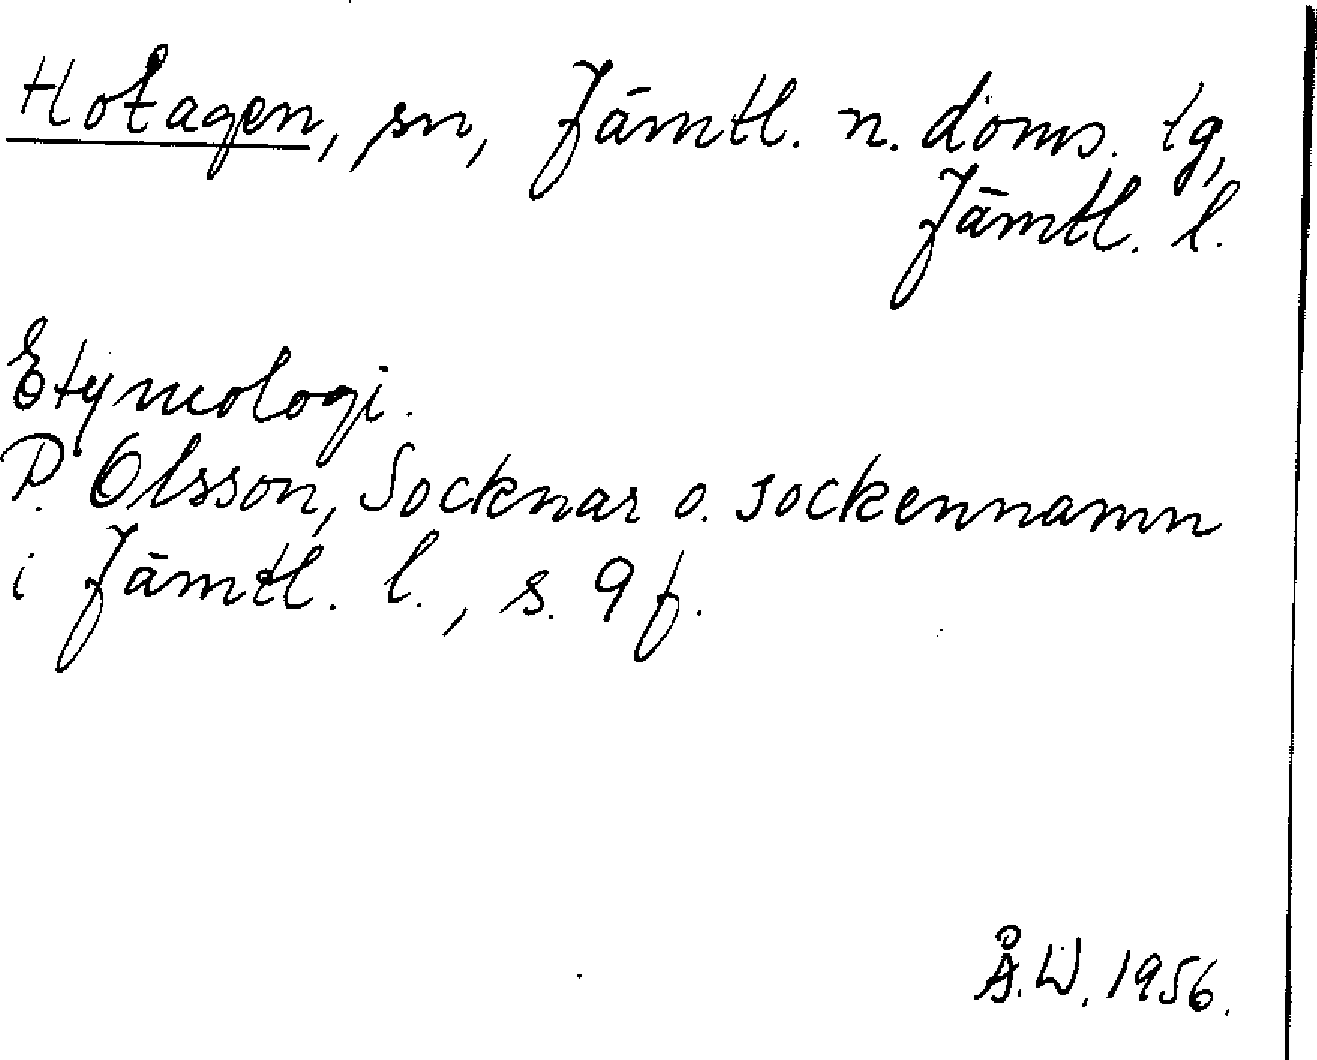 Hotagen, sn, Jämtl. n. doms. tg,
Jämtl. l.
Etymologi.
P. Olsson, Socknar o. sockennamn
i Jämtl. l., s. 9 f.
Å.W. 1956.